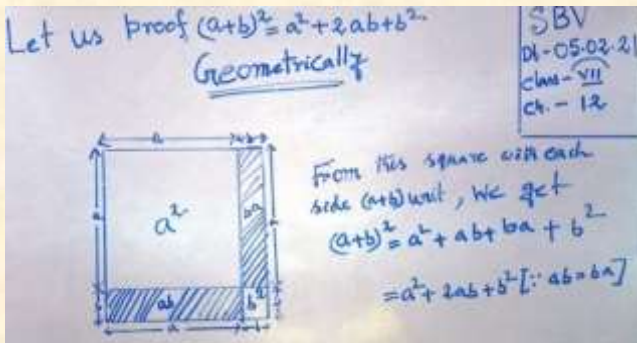 Let us proof (a+b)²= a²+2ab+b²
Geometrically
SBV
Dt-05.02.21
Class- VII
Ch. - 12
a
b
a²
ba
ab
b²
a
b
From this square with each
side (a+b) unit, We get
(a+b)²= a²+ab+ba+b²
=a²+2ab+b² [∵ ab=ba]